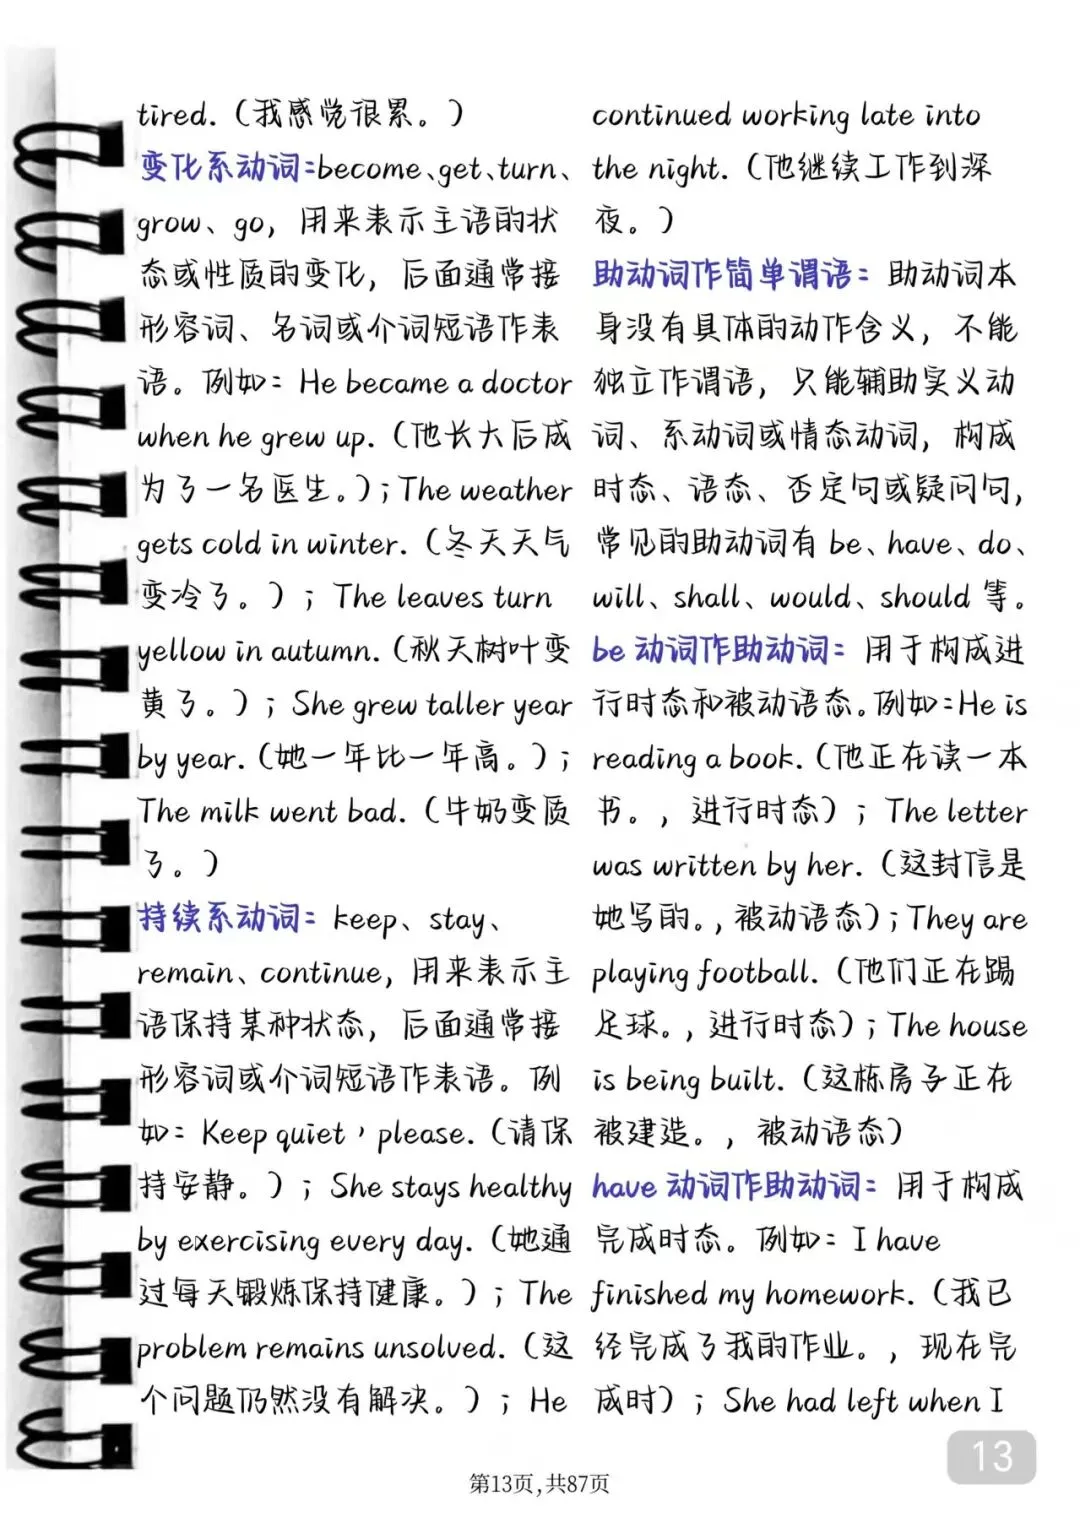 tired.（我感觉很累。）
变化系动词：become、get、turn、
grow、go，用来表示主语的状
态或性质的变化，后面通常接
形容词、名词或介词短语作表
语。例如：He became a doctor
when he grew up.（他长大后成
为了一名医生。）；The weather
gets cold in winter.（冬天天气
变冷了。）；The leaves turn
yellow in autumn.（秋天树叶变
黄了。）；She grew taller year
by year.（她一年比一年高。）；
The milk went bad.（牛奶变质
了。）
持续系动词：keep、stay、
remain、continue，用来表示主
语保持某种状态，后面通常接
形容词或介词短语作表语。例
如：Keep quiet，please.（请保
持安静。）；She stays healthy
by exercising every day.（她通
过每天锻炼保持健康。）；The
problem remains unsolved.（这
个问题仍然没有解决。）；He
continued working late into
the night.（他继续工作到深
夜。）
助动词作简单谓语：助动词本
身没有具体的动作含义，不能
独立作谓语，只能辅助实义动
词、系动词或情态动词，构成
时态、语态、否定句或疑问句，
常见的助动词有 be、have、do、
will、shall、would、should 等。
be 动词作助动词：用于构成进
行时态和被动语态。例如：He is
reading a book.（他正在读一本
书。，进行时态）；The letter
was written by her.（这封信是
她写的。，被动语态）；They are
playing football.（他们正在踢
足球。，进行时态）；The house
is being built.（这栋房子正在
被建造。，被动语态）
have 动词作助动词：用于构成
完成时态。例如：I have
finished my homework.（我已
经完成了我的作业。，现在完
成时）；She had left when I
13
第13页，共87页